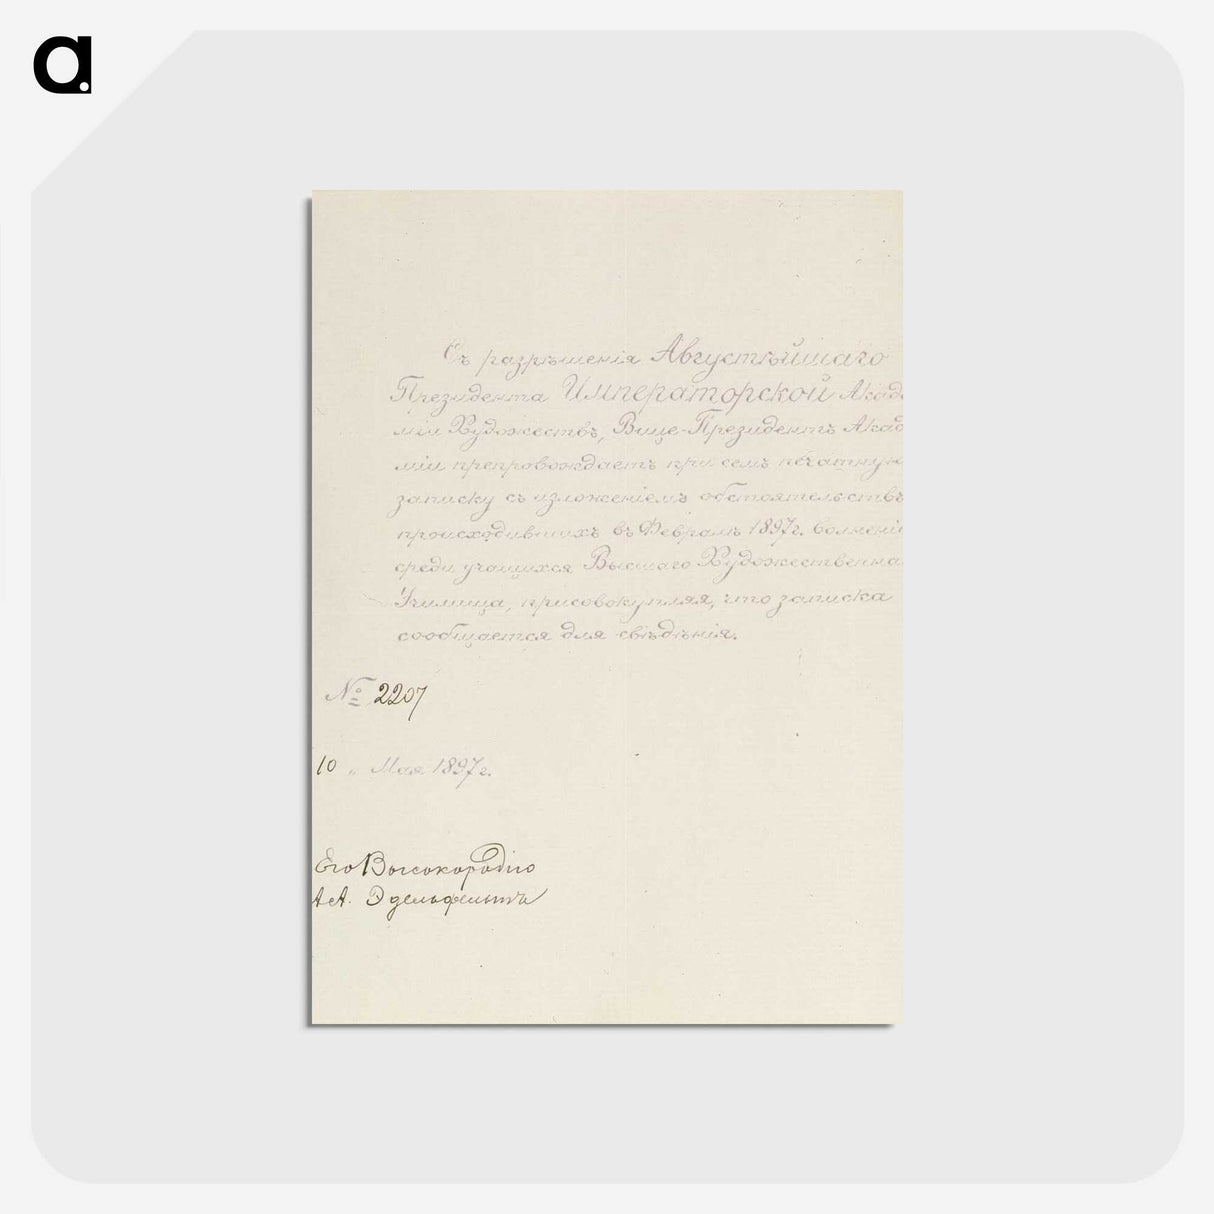 a.
Съ разрѣшенія Августѣйшаго
Президента Императорской Акаде
міи Художествъ, Вице-Президентъ Акаде
міи препровождаетъ при семъ печатную
записку съ изложеніемъ обстоятельствъ
происходившихъ въ Февралѣ 1897г. волненій
среди учащихся Высшаго Художественна
Училища, присовокупляя, что записка
сообщается для свѣдѣнія.
№ 2207
10 „ Мая 1897г.
Его Высокородію
А. А. Эдельфельтъ